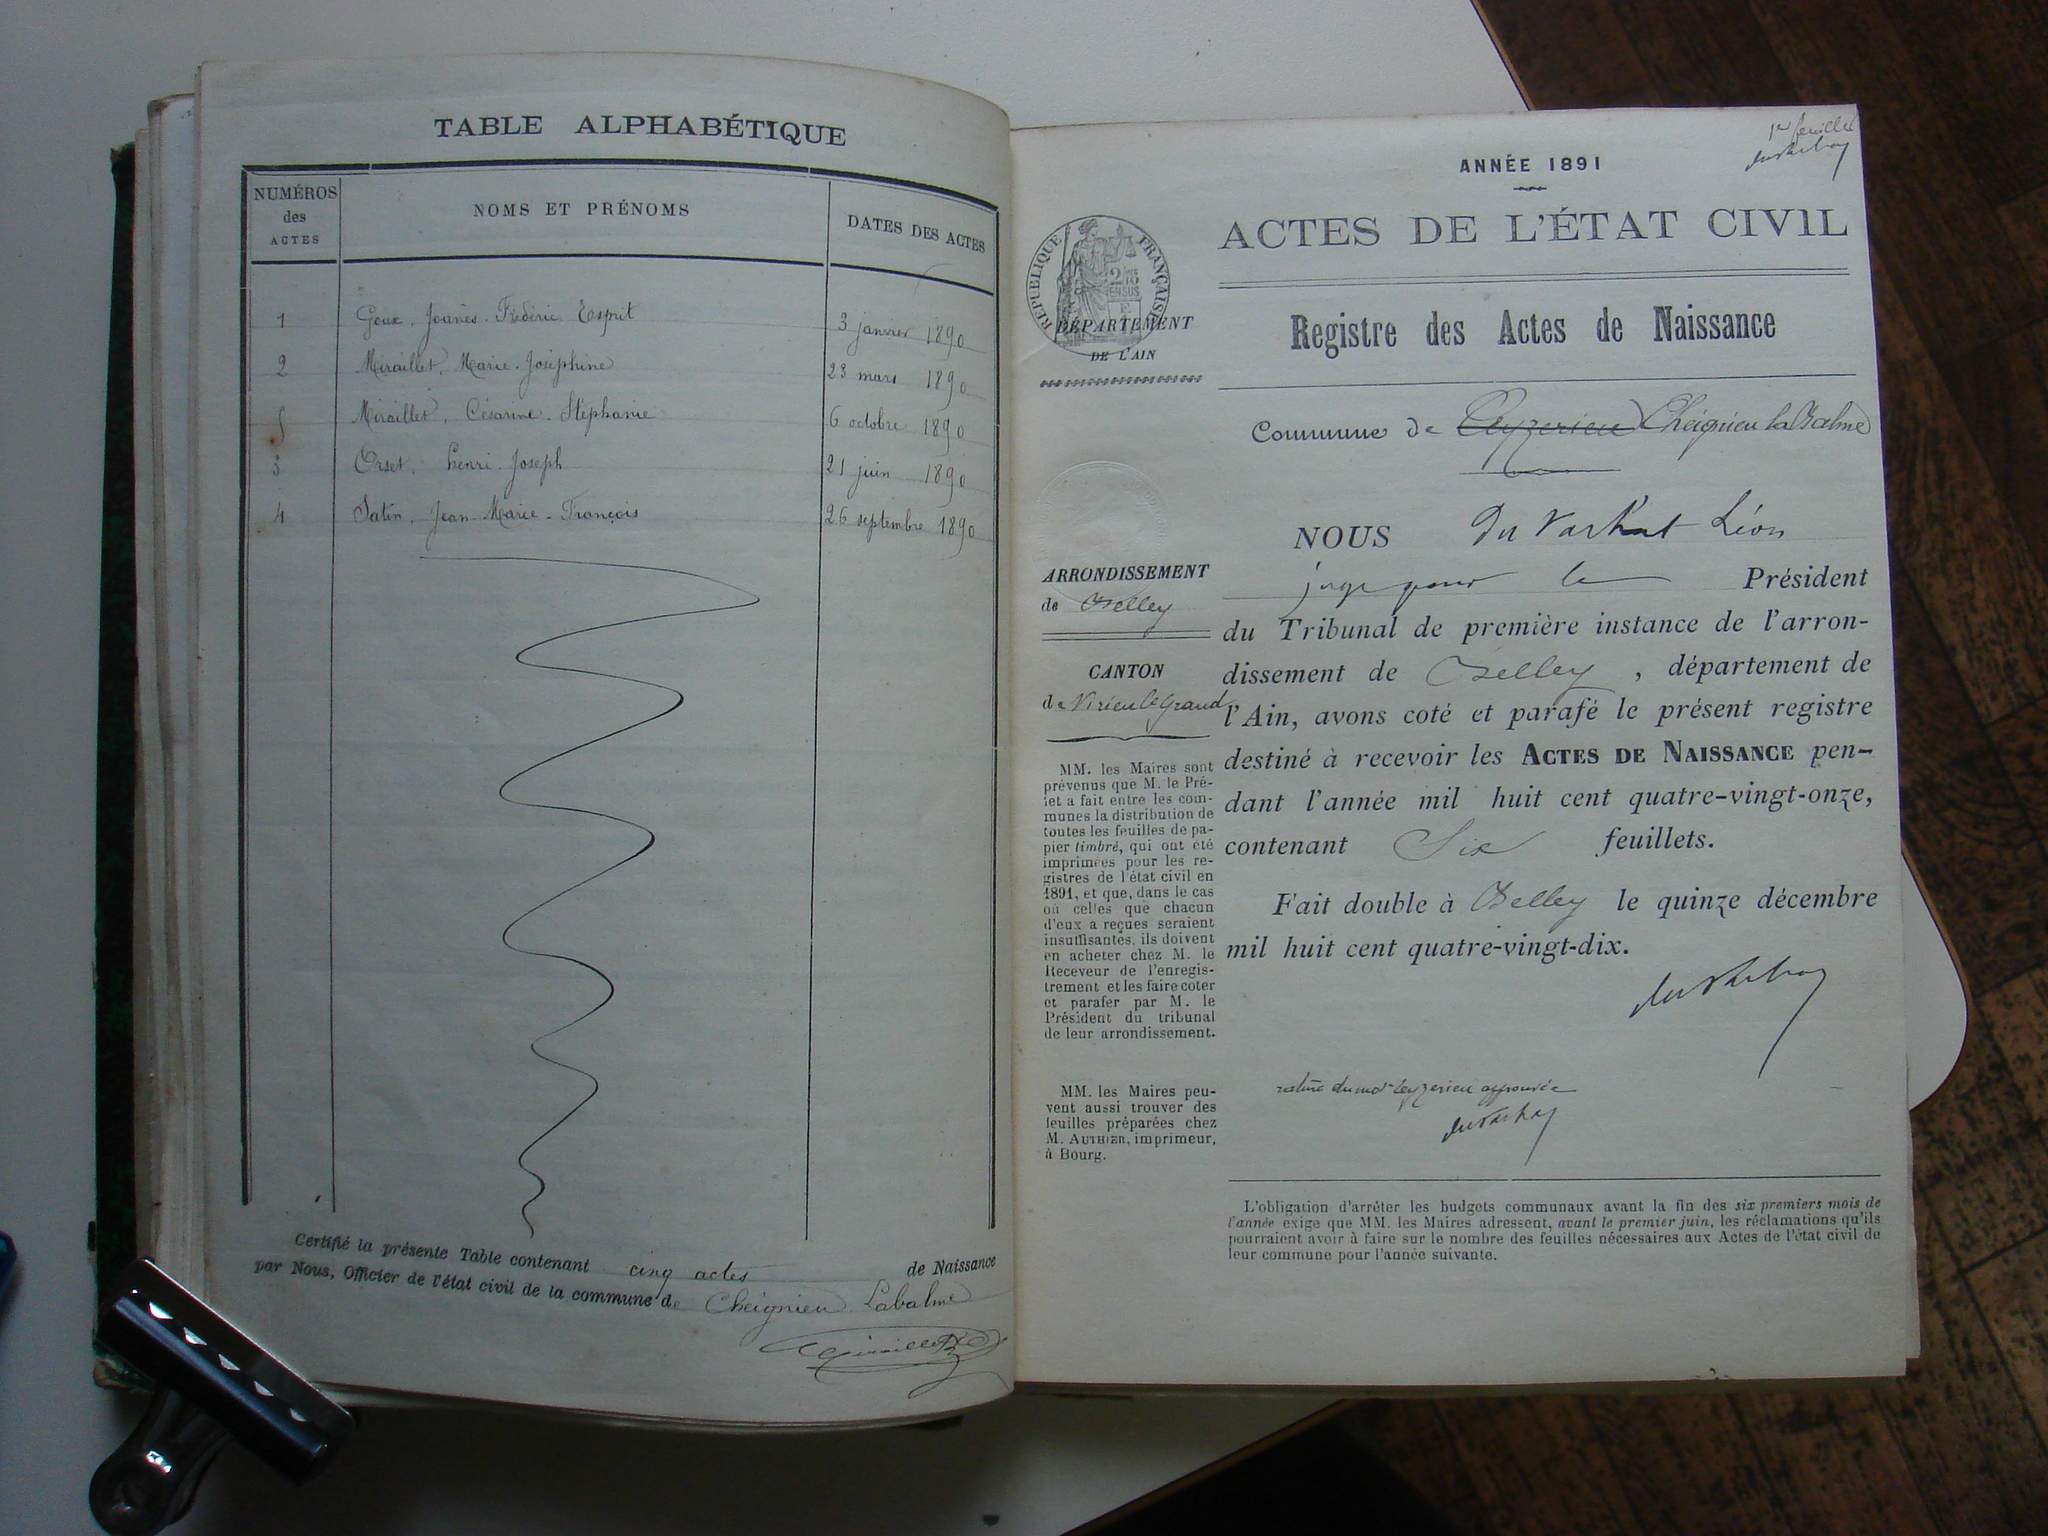 TABLE ALPHABÉTIQUE
NUMÉROS des ACTES
NOMS ET PRÉNOMS
DATES DES ACTES
1 Goux, Joanès Frédéric Esprit 3 janvier 1890
2 Miraillet, Marie-Joséphine 23 mars 1890
5 Miraillet, Césarine-Stéphanie 6 octobre 1890
3 Orset, Henri Joseph 21 juin 1890
4 Satin, Jean-Marie-François 26 septembre 1890
Certifié la présente Table contenant cinq actes de Naissance
par Nous, Officier de l'état civil de la commune de Cheignieu Labalme
1er feuillet
ANNÉE 1891
ACTES DE L'ÉTAT CIVIL
RÉPUBLIQUE FRANÇAISE
DÉPARTEMENT
DE L'AIN
Registre des Actes de Naissance
Commune de Ceyzerieu Cheignieu la Balme
NOUS Léon
juge pour le Président
du Tribunal de première instance de l'arron-
dissement de Belley, département de
l'Ain, avons coté et parafé le présent registre
destiné à recevoir les ACTES DE NAISSANCE pen-
dant l'année mil huit cent quatre-vingt-onze,
contenant Six feuillets.
Fait double à Belley le quinze décembre
mil huit cent quatre-vingt-dix.
rature du mot Ceyzerieu approuvée
ARRONDISSEMENT
de Belley
CANTON
de Virieu le Grand
MM. les Maires sont
prévenus que M. le Pré-
fet a fait entre les com-
munes la distribution de
toutes les feuilles de pa-
pier timbré, qui ont été
imprimées pour les re-
gistres de l'état civil en
1891, et que, dans le cas
où celles que chacun
d'eux a reçues seraient
insuffisantes, ils doivent
en acheter chez M. le
Receveur de l'enregis-
trement et les faire coter
et parafer par M. le
Président du tribunal
de leur arrondissement.
MM. les Maires peu-
vent aussi trouver des
feuilles préparées chez
M. AUTHIER, imprimeur,
à Bourg.
L'obligation d'arrêter les budgets communaux avant la fin des six premiers mois de
l'année exige que MM. les Maires adressent, avant le premier juin, les réclamations qu'ils
pourraient avoir à faire sur le nombre des feuilles nécessaires aux Actes de l'état civil de
leur commune pour l'année suivante.